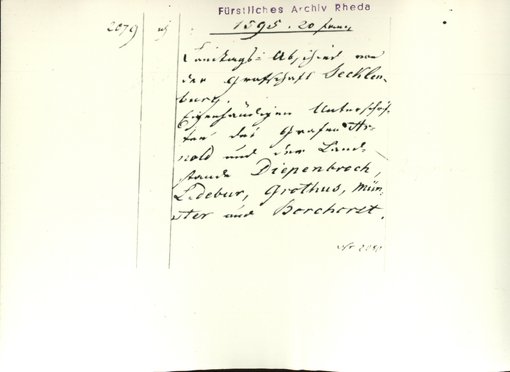 Fürstliches Archiv Rheda
2079
1595. 20
Landtags-Abschied von
der Grafschaft Tecklen-
burg.
Eigenhändigen Unterschrif-
ten des Grafen Ar-
nold und der Land-
stände Diepenbroch,
Ledebur, Grothus, Mün-
ster und Borchorst.